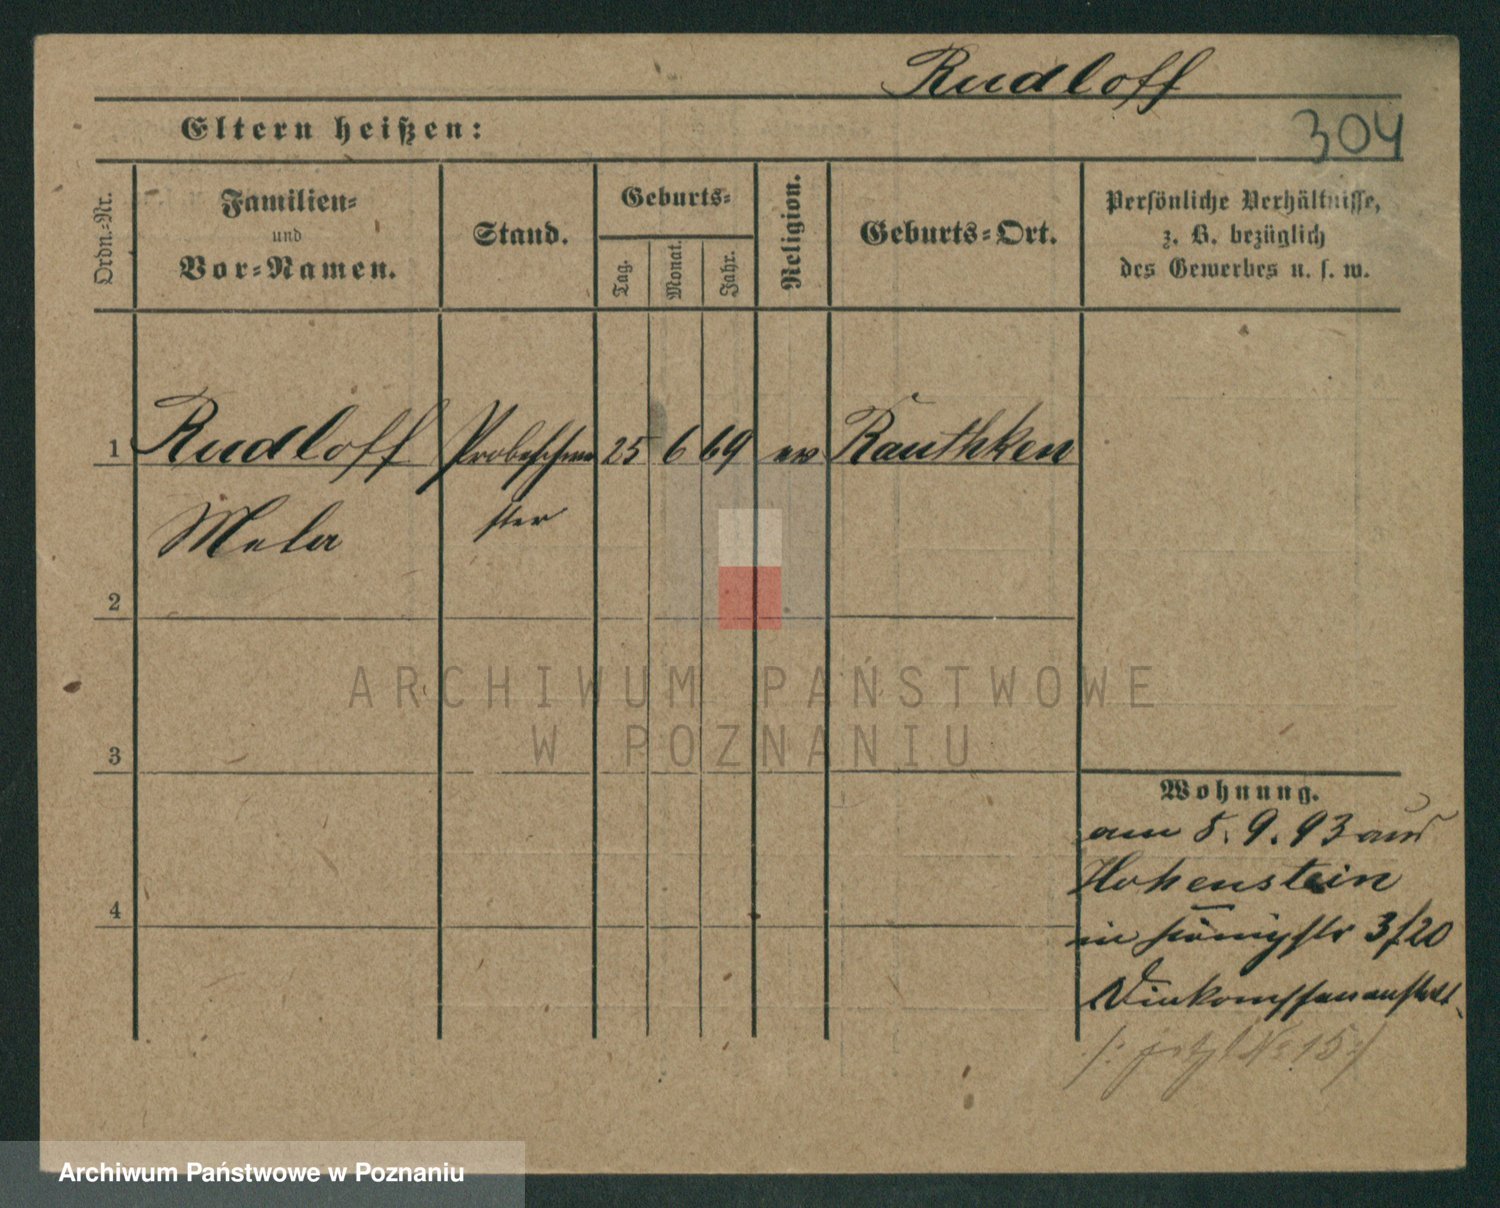 Rudloff
304
Eltern heißen:
Ordn.-Nr.
Familien-
und
Vor-Namen.
Stand.
Geburts-
Tag.
Monat.
Jahr.
Religion.
Geburts-Ort.
Persönliche Verhältnisse,
z. B. bezüglich
des Gewerbes u. s. w.
1 Rudloff Probeschwe 25 6 69 ev Rauthken
Mela ster
2
ARCHIWUM PAŃSTWOWE
W POZNANIU
3
Wohnung.
am 5. 9. 93 aus
Hohenstein
4
in Königstr 3/20
Diakonissenanstalt
/: jetzt No 15 :/
Archiwum Państwowe w Poznaniu